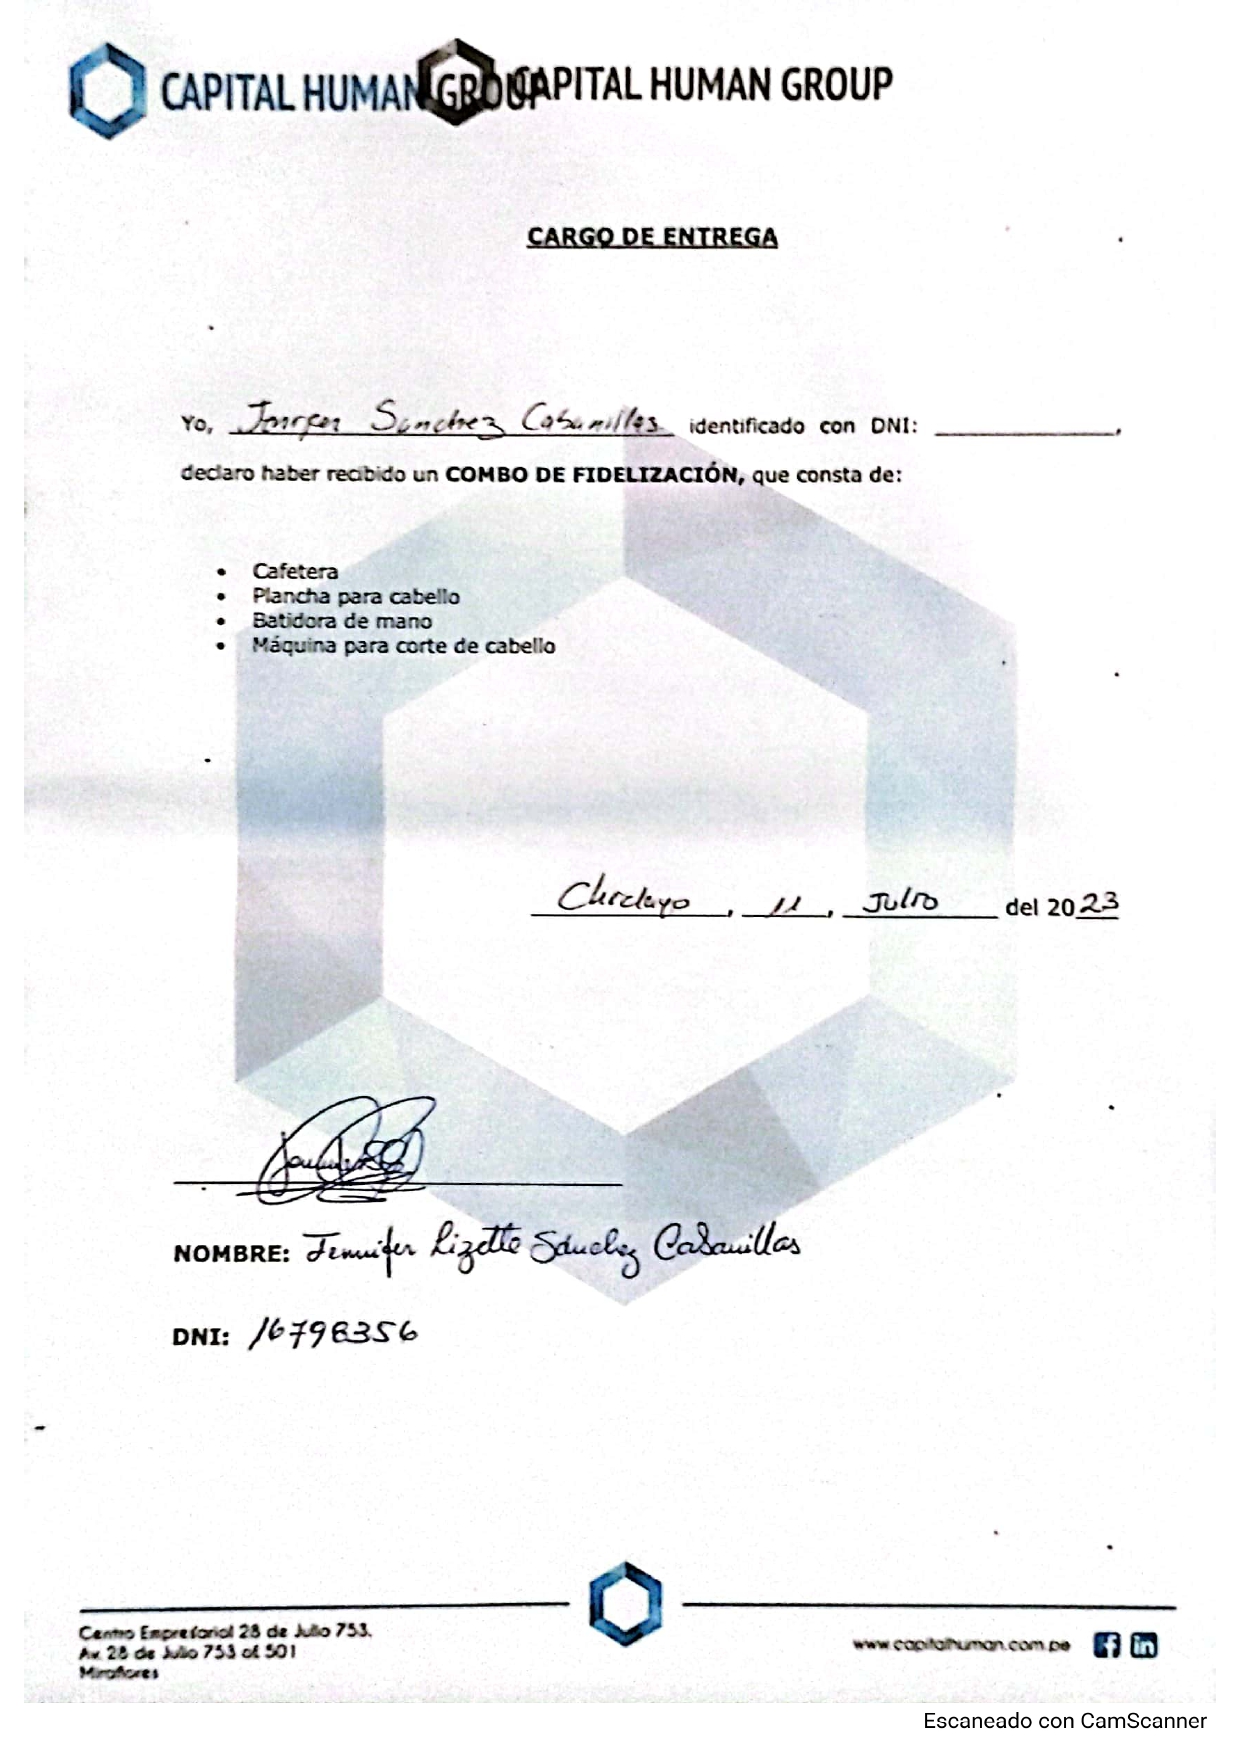 CAPITAL HUMAN GROUP CAPITAL HUMAN GROUP
CARGO DE ENTREGA
Yo, Sanchez Cabanillas identificado con DNI: ____________,
declaro haber recibido un COMBO DE FIDELIZACIÓN, que consta de:
• Cafetera
• Plancha para cabello
• Batidora de mano
• Máquina para corte de cabello
Chiclayo, 11, Julio del 2023
NOMBRE: Jennifer Lizette Sánchez Cabanillas
DNI: 16798356
Centro Empresarial 28 de Julio 753.
Av. 28 de Julio 753 of 501
Miraflores
www.capitalhuman.com.pe
Escaneado con CamScanner